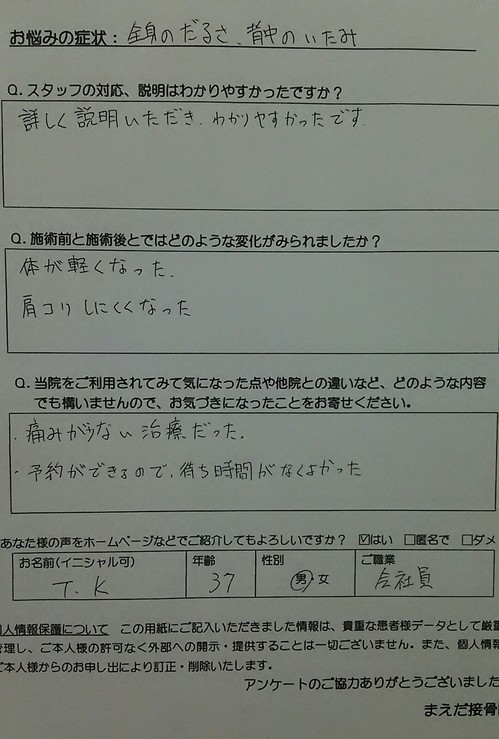 お悩みの症状：全身のだるさ、背中のいたみ
Q. スタッフの対応、説明はわかりやすかったですか？
詳しく説明いただき、わかりやすかったです。
Q. 施術前と施術後とではどのような変化がみられましたか？
体が軽くなった。
肩コリしにくくなった
Q. 当院をご利用されてみて気になった点や他院との違いなど、どのような内容
でも構いませんので、お気づきになったことをお寄せください。
・痛みが少ない治療だった。
・予約ができるので、待ち時間がなくよかった
あなた様の声をホームページなどでご紹介してもよろしいですか？ ☑はい □匿名で □ダメ
お名前(イニシャル可) 年齢 性別 ご職業
T.K 37 男・女 会社員
個人情報保護について この用紙にご記入いただきました情報は、貴重な患者様データとして厳重
管理し、ご本人様の許可なく外部への開示・提供することは一切ございません。また、個人情報
ご本人様からのお申し出により訂正・削除いたします。
アンケートのご協力ありがとうございました
まえだ接骨